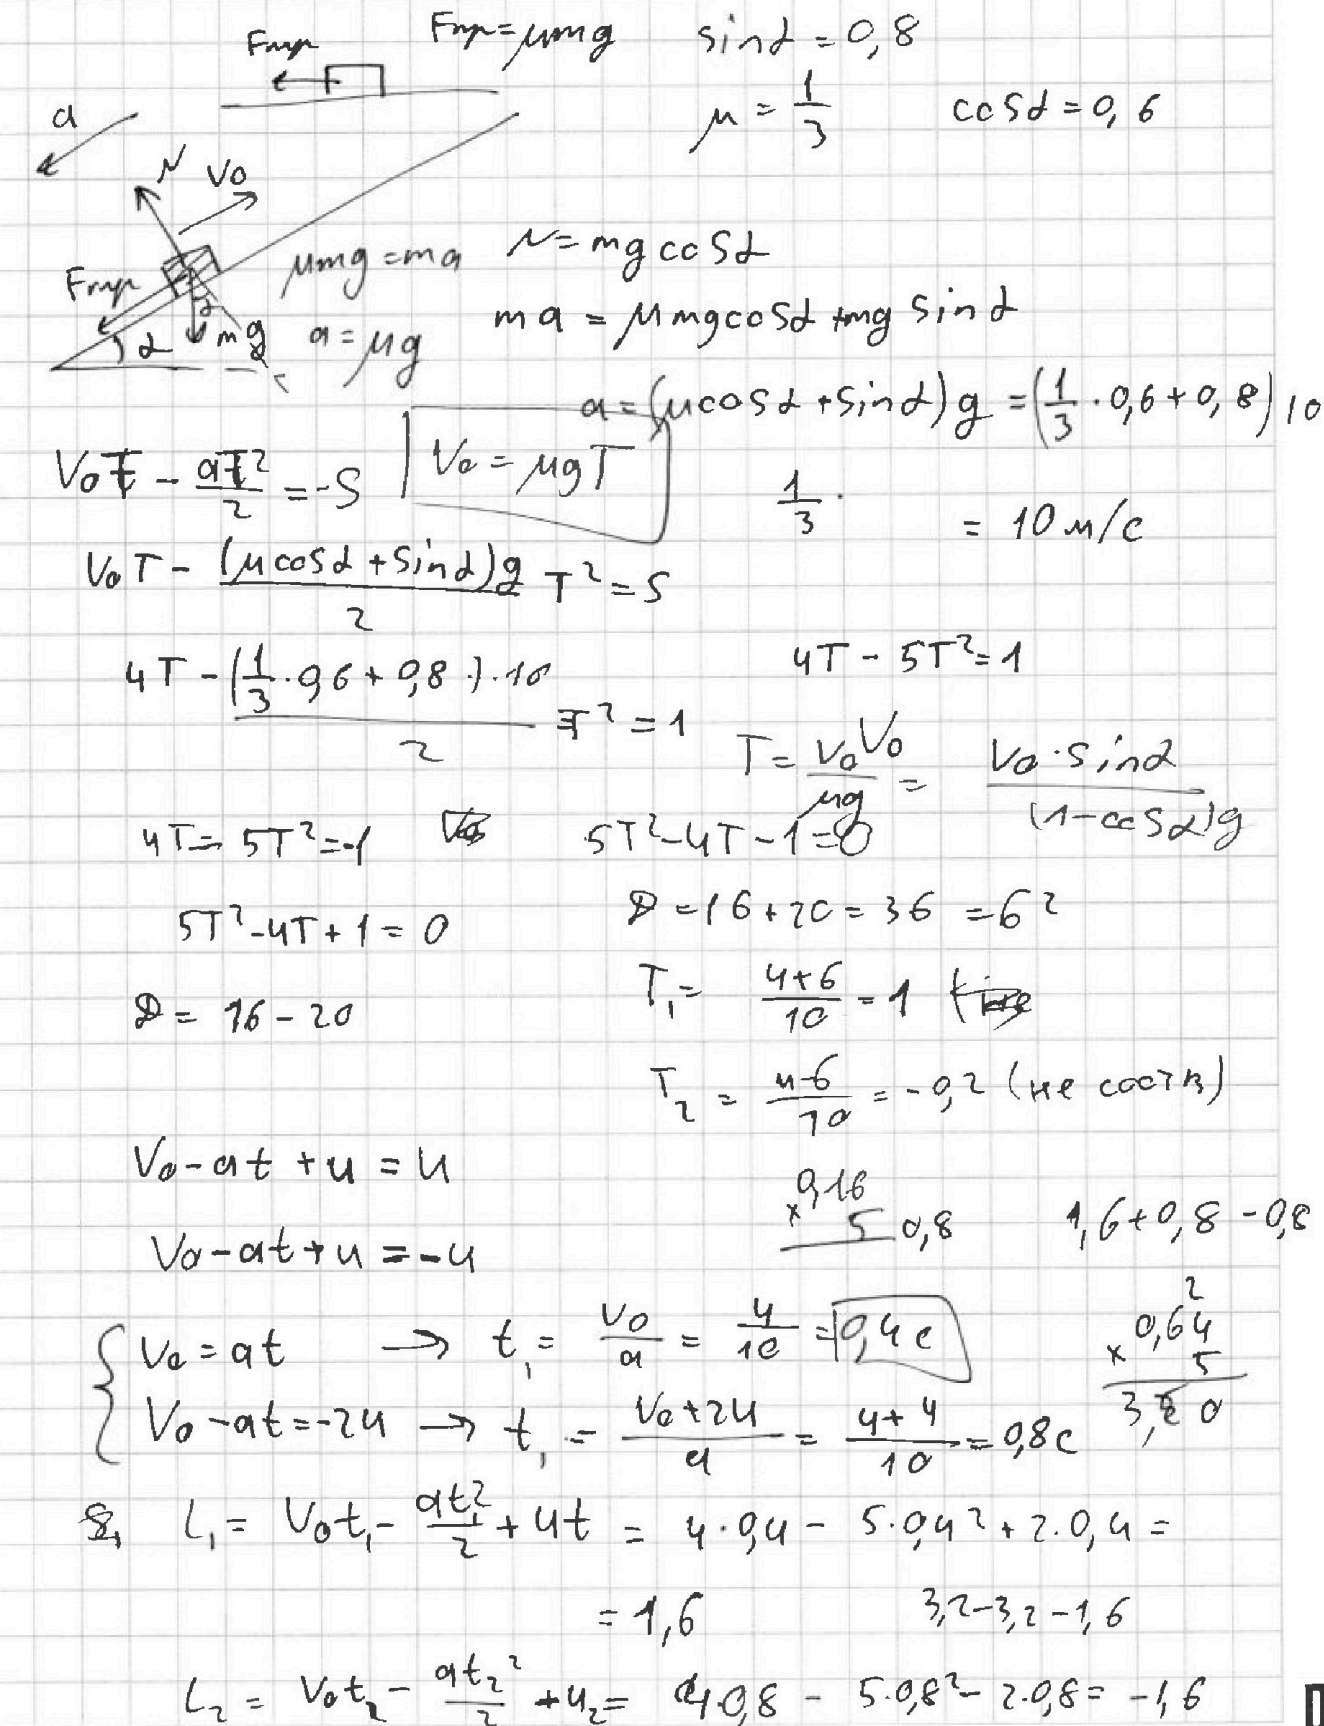 Fтр Fтр = μmg sinα = 0,8
μ = 1/3 cosα = 0,6
a
N V0
Fтр α mg α
μmg = ma N = mg cosα
a = μg ma = μmgcosα + mg sinα
a = (μcosα + sinα)g = (1/3 · 0,6 + 0,8) 10
V0T - aT²/2 = -S V0 = μgT 1/3 · = 10 м/с
V0T - (μcosα + sinα)g/2 T² = S
4T - (1/3 · 0,6 + 0,8) · 10/2 T² = 1 4T - 5T² = 1
T = V0/μg = V0 · sinα/(1-cosα)g
4T - 5T² = -1 5T² - 4T - 1 = 0
5T² - 4T + 1 = 0 D = 16 + 20 = 36 = 6²
D = 16 - 20 T1 = 4+6/10 = 1
T2 = 4-6/10 = -0,2 (не соотв)
V0 - at + u = u
V0 - at + u = -u
0,16 × 5 0,8 1,6 + 0,8 - 0,8
V0 = at → t1 = V0/a = 4/10 = 0,4 с
0,64 × 5 3,20
V0 - at = -2u → t1 = V0 + 2u/a = 4 + 4/10 = 0,8 с
L1 = V0t1 - at1²/2 + ut = 4 · 0,4 - 5 · 0,4² + 2 · 0,4 =
= 1,6 3,2 - 3,2 - 1,6
L2 = V0t2 - at2²/2 + u2 = 4 0,8 - 5 · 0,8² - 2 · 0,8 = -1,6